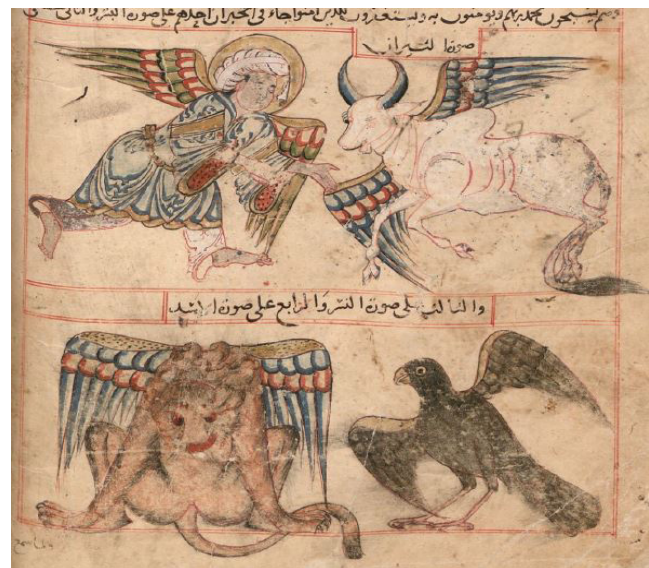 يسبحون بحمد ربهم ويؤمنون به ويستغفرون للذين امنوا جاء في الخبر ان احدهم على صورة البشر والثاني على
صورة الثيران
والثالث على صورة النسر والرابع على صورة الاسد